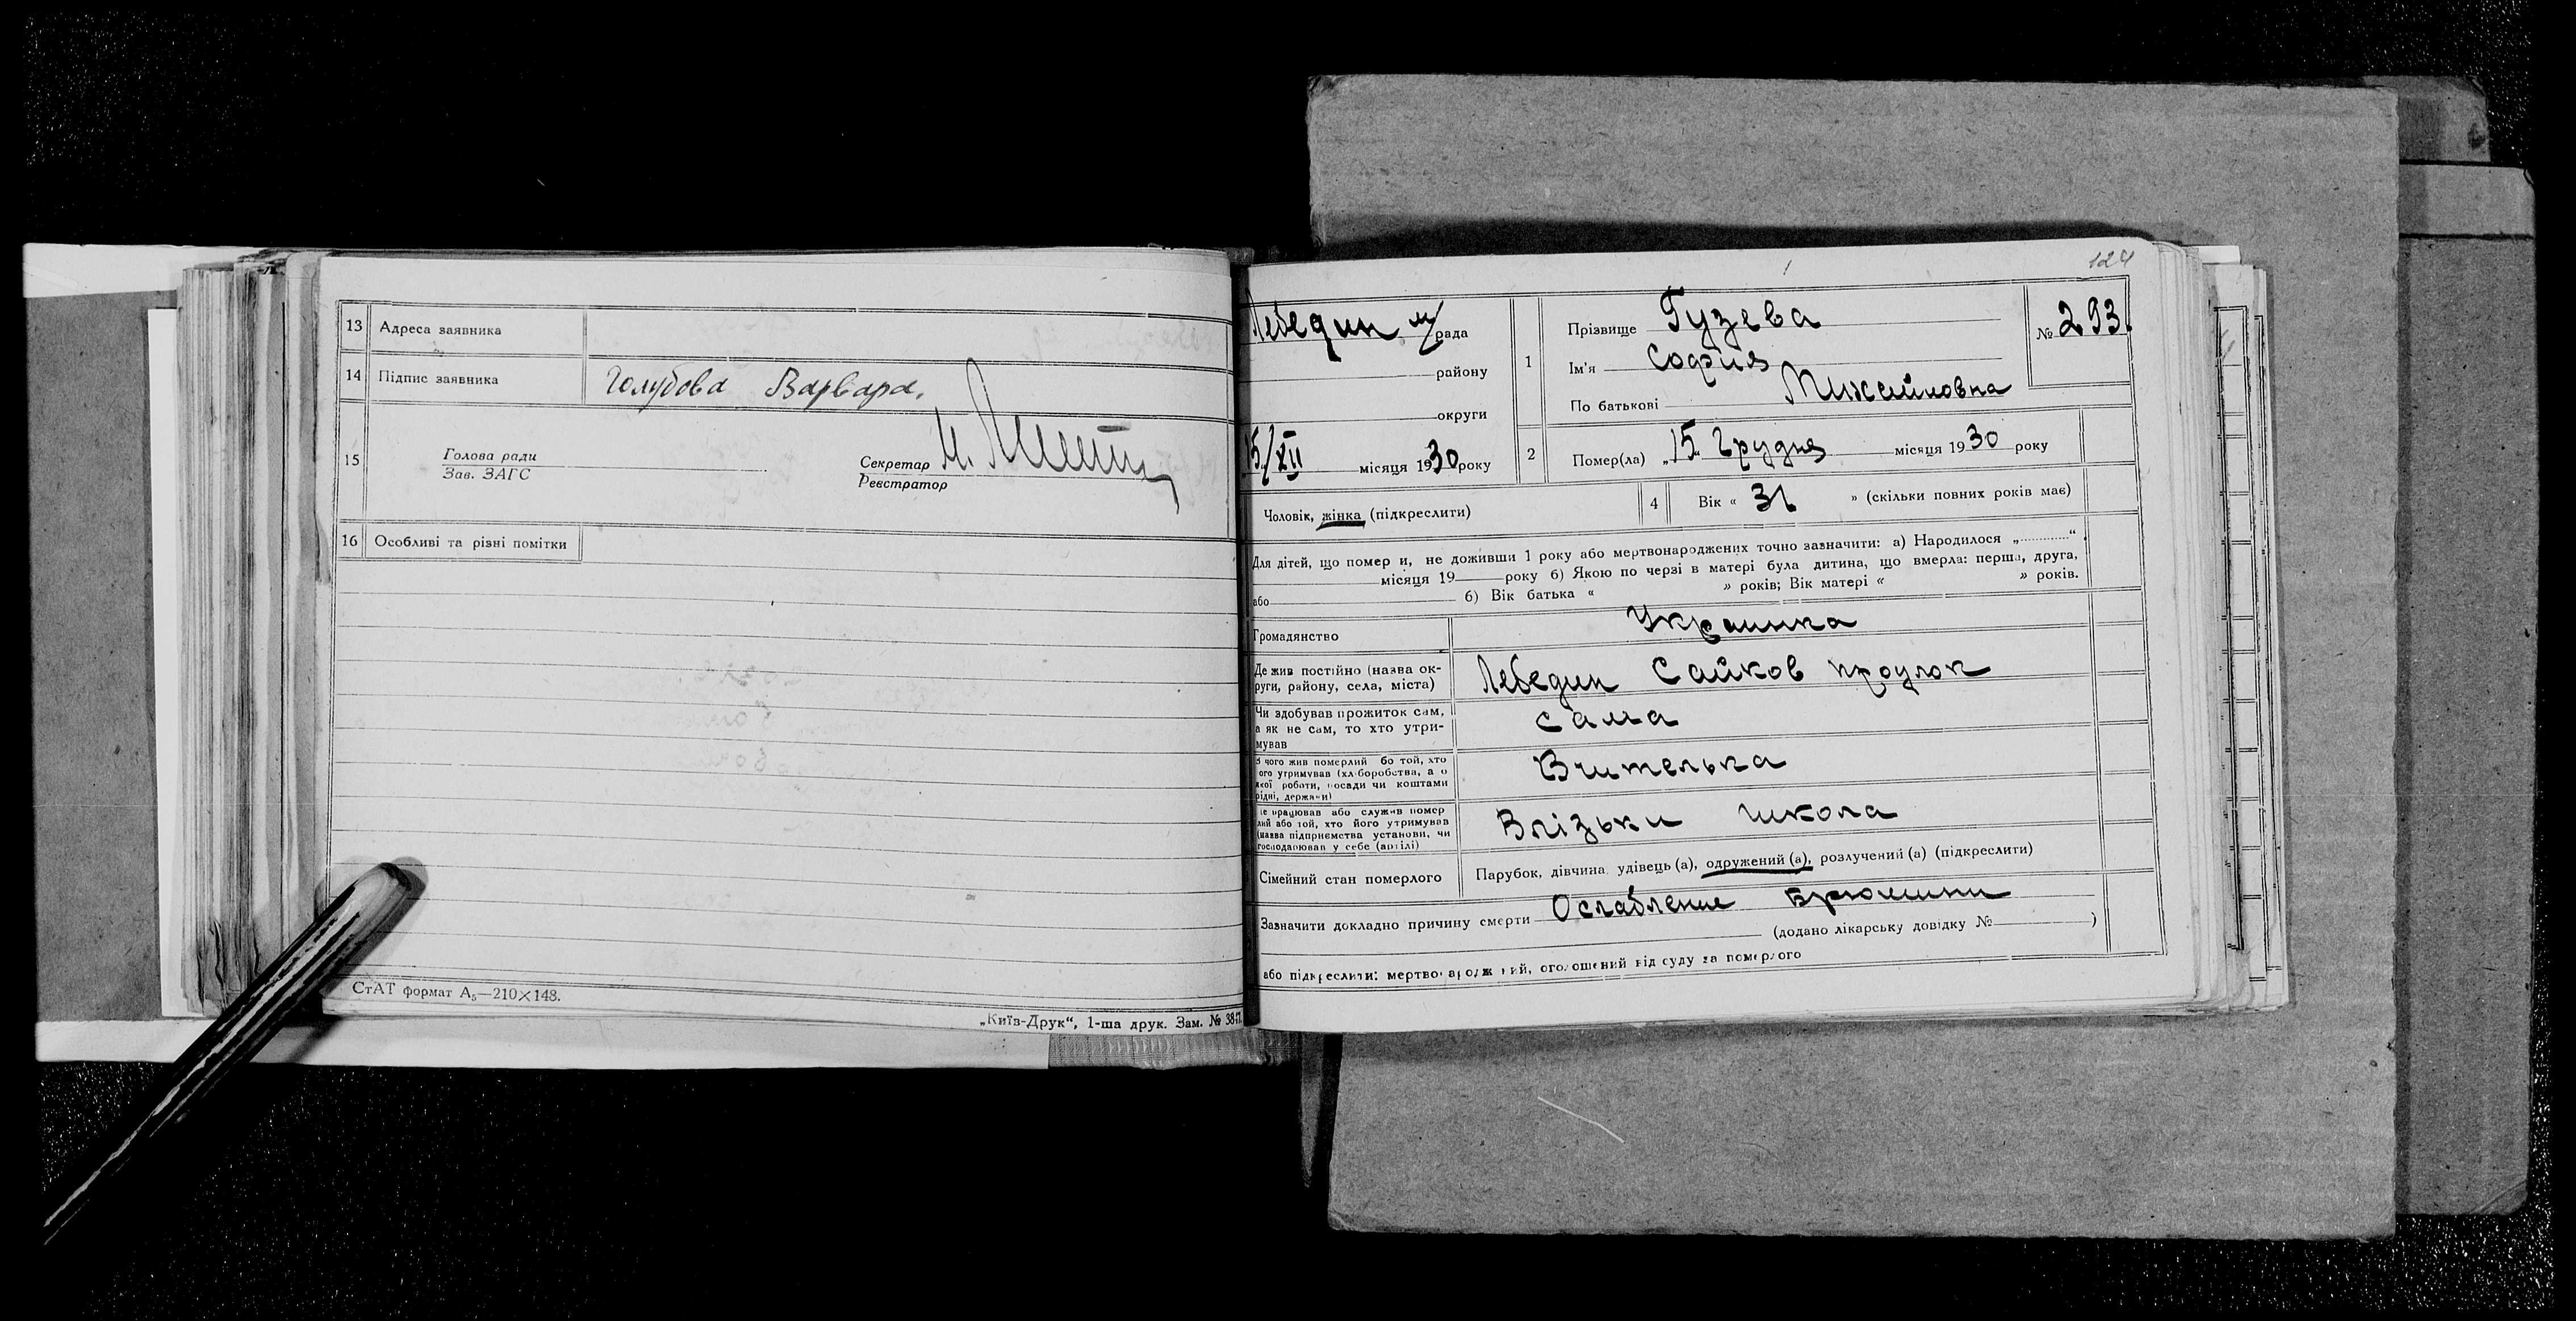 13 Адреса заявника
14 Підпис заявника Голубова Варвара.
15 Голова ради
Зав. ЗАГС
Секретар
Реєстратор
16 Особливі та різні помітки
СтАТ формат А₅—210×148.
„Київ-Друк“, 1-ша друк. Зам. №
124
Лебедин м/рада
району
округи
15/XII місяця 1930 року
1 Прізвище Гузева
Ім'я София
По батькові Михайловна
№ 293
2 Помер(ла) „15“ Грудня місяця 1930 року
Чоловік, жінка (підкреслити)
4 Вік « 31 » (скільки повних років має)
Для дітей, що помер и, не доживши 1 року або мертвонароджених точно зазначити: а) Народилося „............“
місяця 19 року б) Якою по черзі в матері була дитина, що вмерла: перша, друга,
або б) Вік батька « » років; Вік матері « » років.
Громадянство Украинка
Де жив постійно (назва ок-
руги, району, села, міста) Лебедин Сайков проулок
Чи здобував прожиток сам,
а як не сам, то хто утри-
мував сама
З чого жив померлий бо той, хто
ого утримував (хліборобства, а о
якої роботи, посади чи коштами
рідні, держави) Вчителька
де працював або служив помер
лий або той, хто його утримував
(назва підприємства установи, чи
господарював у себе (артілі) школа
Сімейний стан померлого Парубок, дівчина удівець (а), одружений (а), розлучений (а) (підкреслити)
Зазначити докладно причину смерти Ослабление
(додано лікарську довідку № )
або підкреслити: мертвонароджений, оголошений від суду за померлого